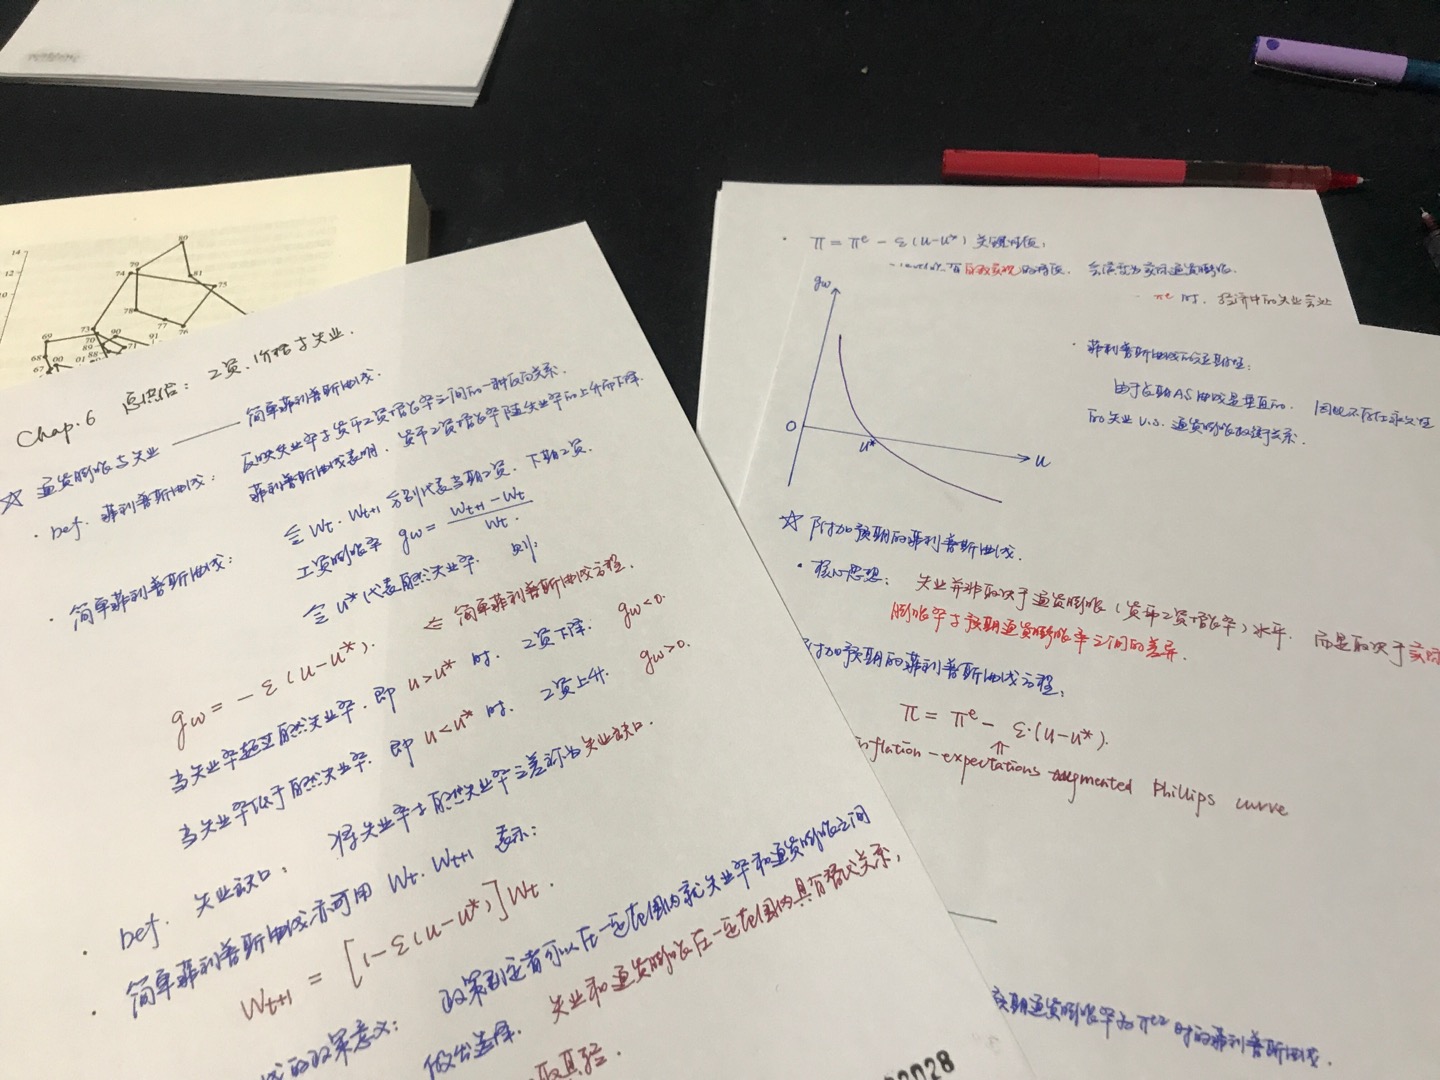 14
12
10
80
79
74
81
75
78
77
76
73
69
68
67
00
01
70
90
89
88
71
91
Chap.6 总供给：工资、价格与失业.
☆ 通货膨胀与失业 —— 简单菲利普斯曲线.
· Def. 菲利普斯曲线： 反映失业率与货币工资增长率之间的一种反向关系.
菲利普斯曲线表明，货币工资增长率随失业率的上升而下降.
· 简单菲利普斯曲线： 令 Wt. Wt+1 分别代表当期工资、下期工资.
工资膨胀率 gw = (Wt+1 − Wt) / Wt.
令 u* 代表自然失业率. 则：
gw = − ε(u−u*). ⇐ 简单菲利普斯曲线方程.
当失业率超过自然失业率，即 u>u* 时，工资下降. gw<0.
当失业率低于自然失业率，即 u<u* 时，工资上升. gw>0.
· Def. 失业缺口： 将失业率与自然失业率之差称为失业缺口.
· 简单菲利普斯曲线亦可用 Wt. Wt+1 表示：
Wt+1 = [1−ε(u−u*)]Wt.
线的政策意义： 政策制定者可以在一定范围内就失业率和通货膨胀之间
做出选择. 失业和通货膨胀在一定范围内具有替代关系，
· π = πe − ε(u−u*)
πe 时，经济中的失业会处
gw
O
u*
u
· 菲利普斯曲线的
由于长期AS曲线是垂直的，因此不存在永久性
的失业 v.s. 通货膨胀 关系.
☆ 附加预期的菲利普斯曲线.
· 核心思想： 失业并非取决于通货膨胀（货币工资增长率）水平，而是取决于实际
膨胀率与预期通货膨胀率之间的差异.
附加预期的菲利普斯曲线方程：
π = πe − ε·(u−u*).
⇑
inflation-expectations-augmented Phillips curve
预期通货膨胀率为πe2时的菲利普斯曲线.